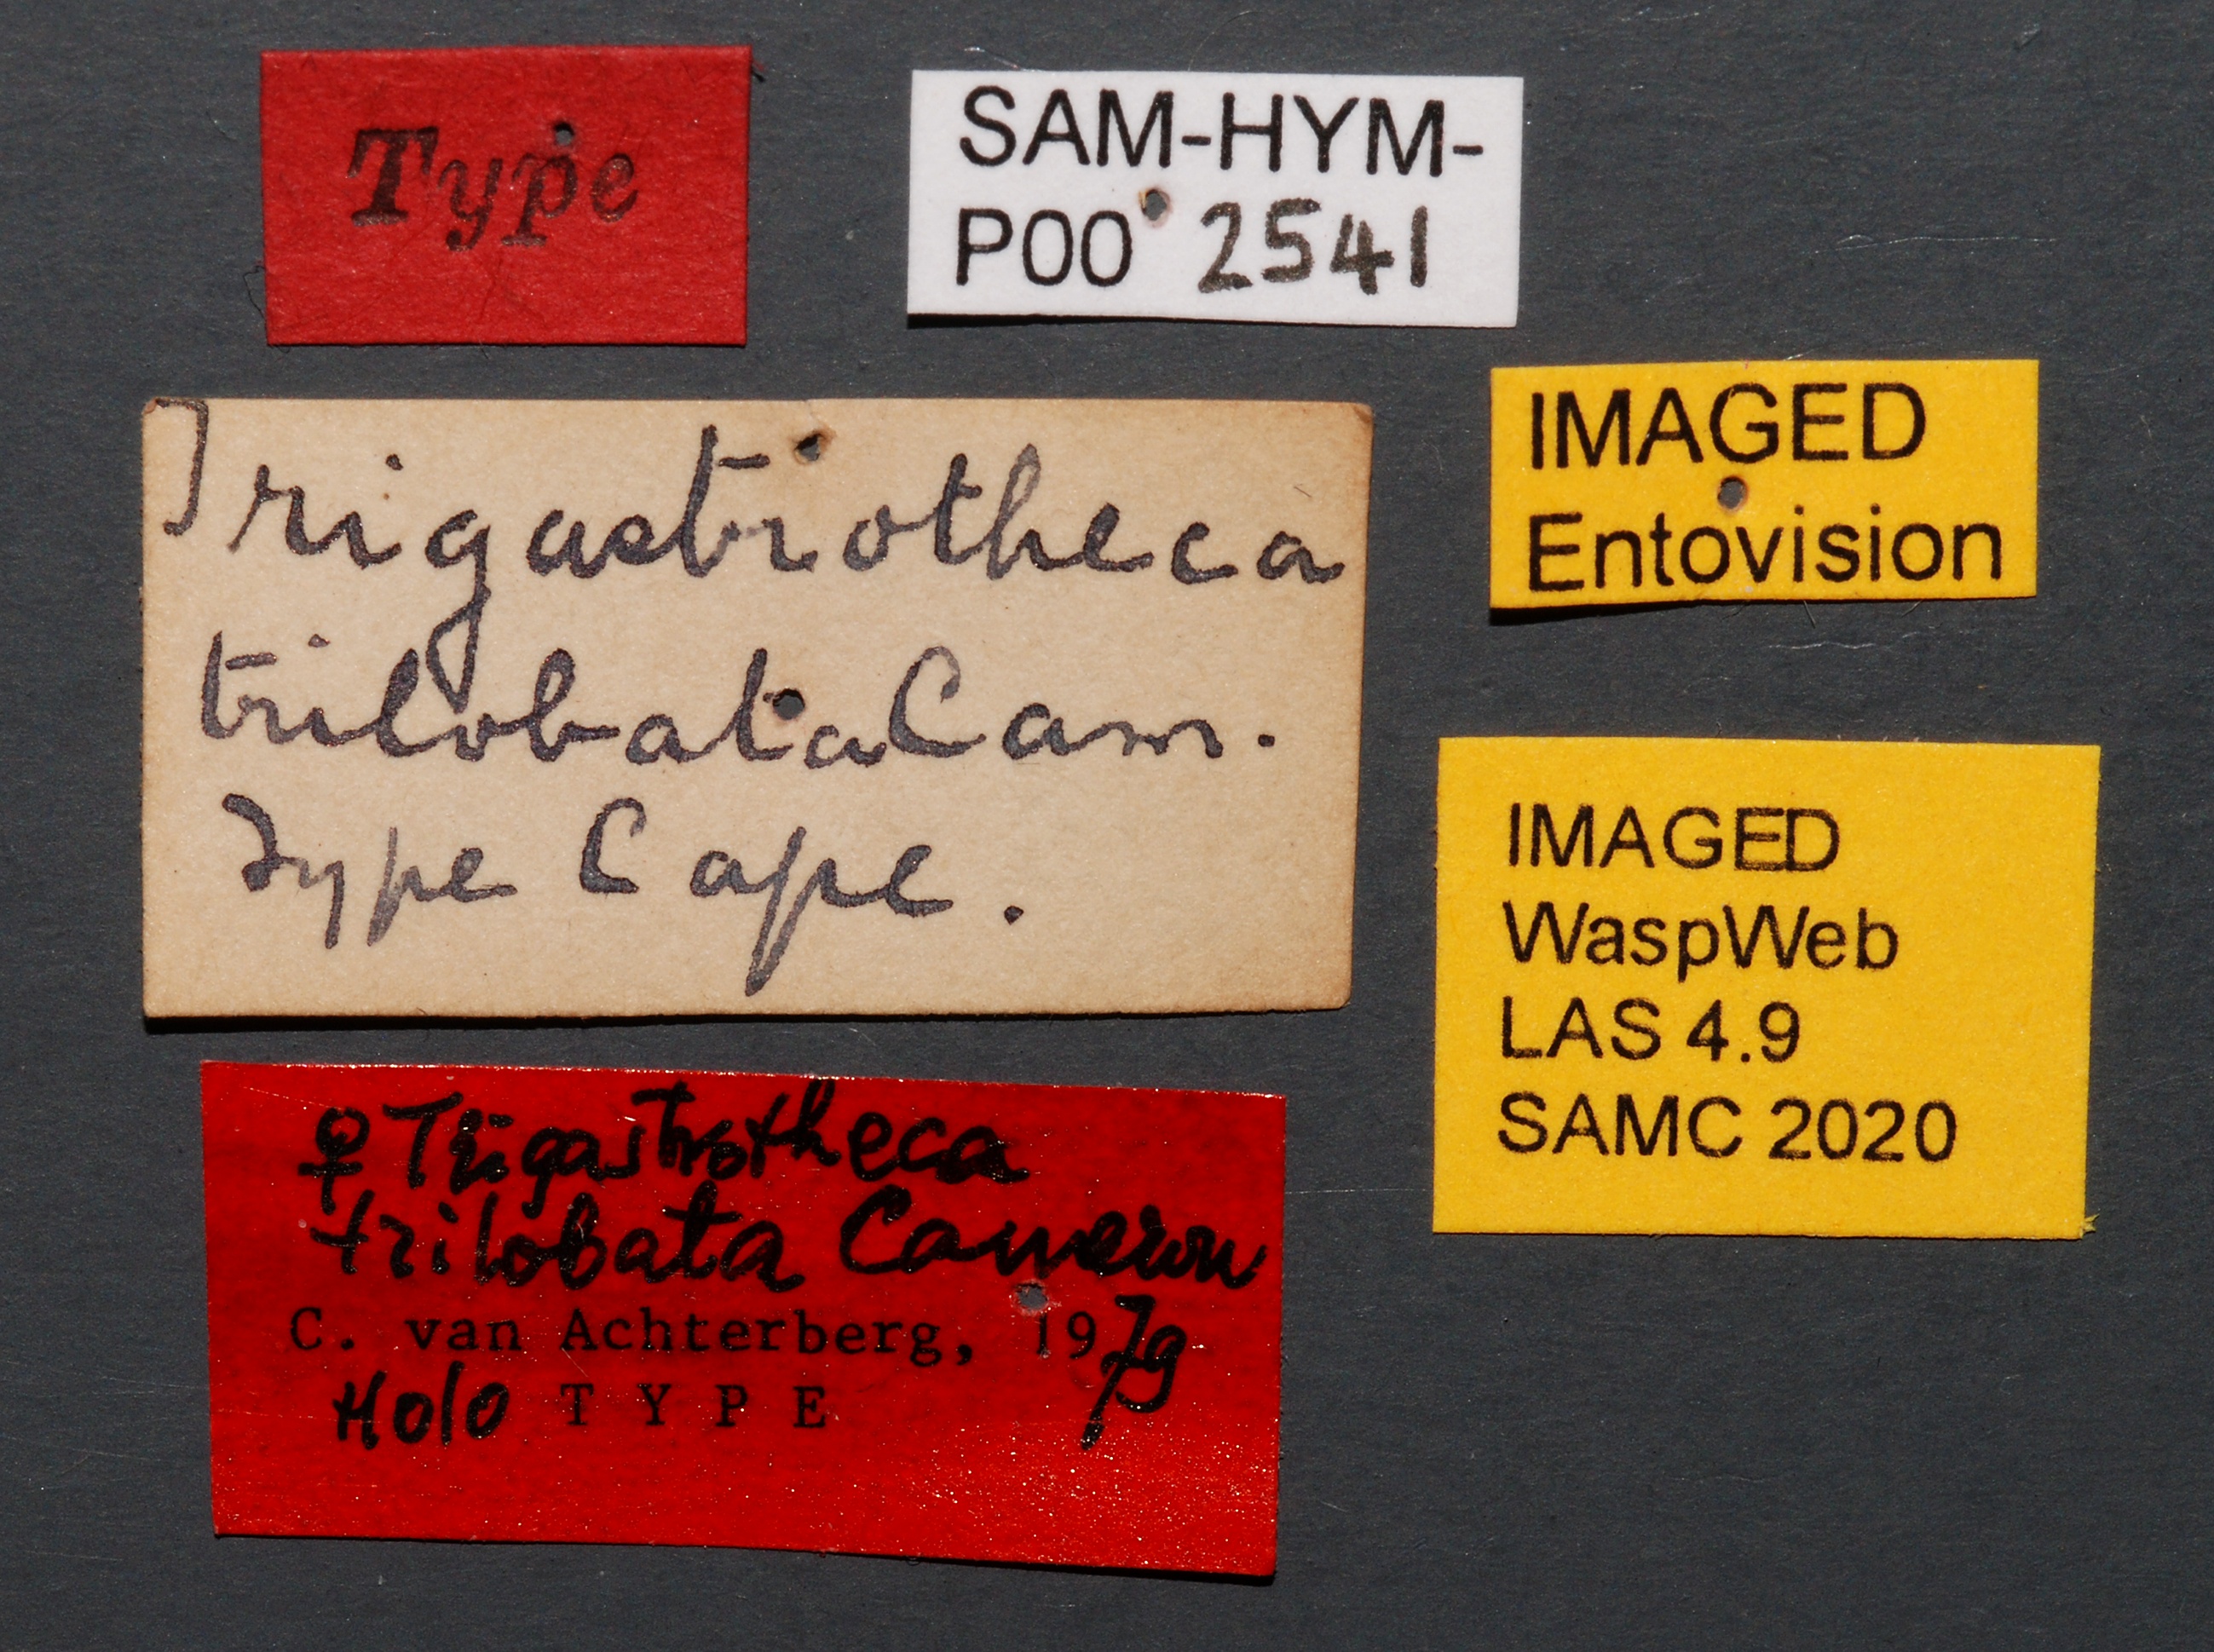 Type
SAM-HYM-
P00 2541
Trigastrotheca
trilobata Cam.
Type Cape.
IMAGED
Entovision
IMAGED
WaspWeb
LAS 4.9
SAMC 2020
♀ Trigastrotheca
trilobata Cameron
C. van Achterberg, 1979
Holo TYPE